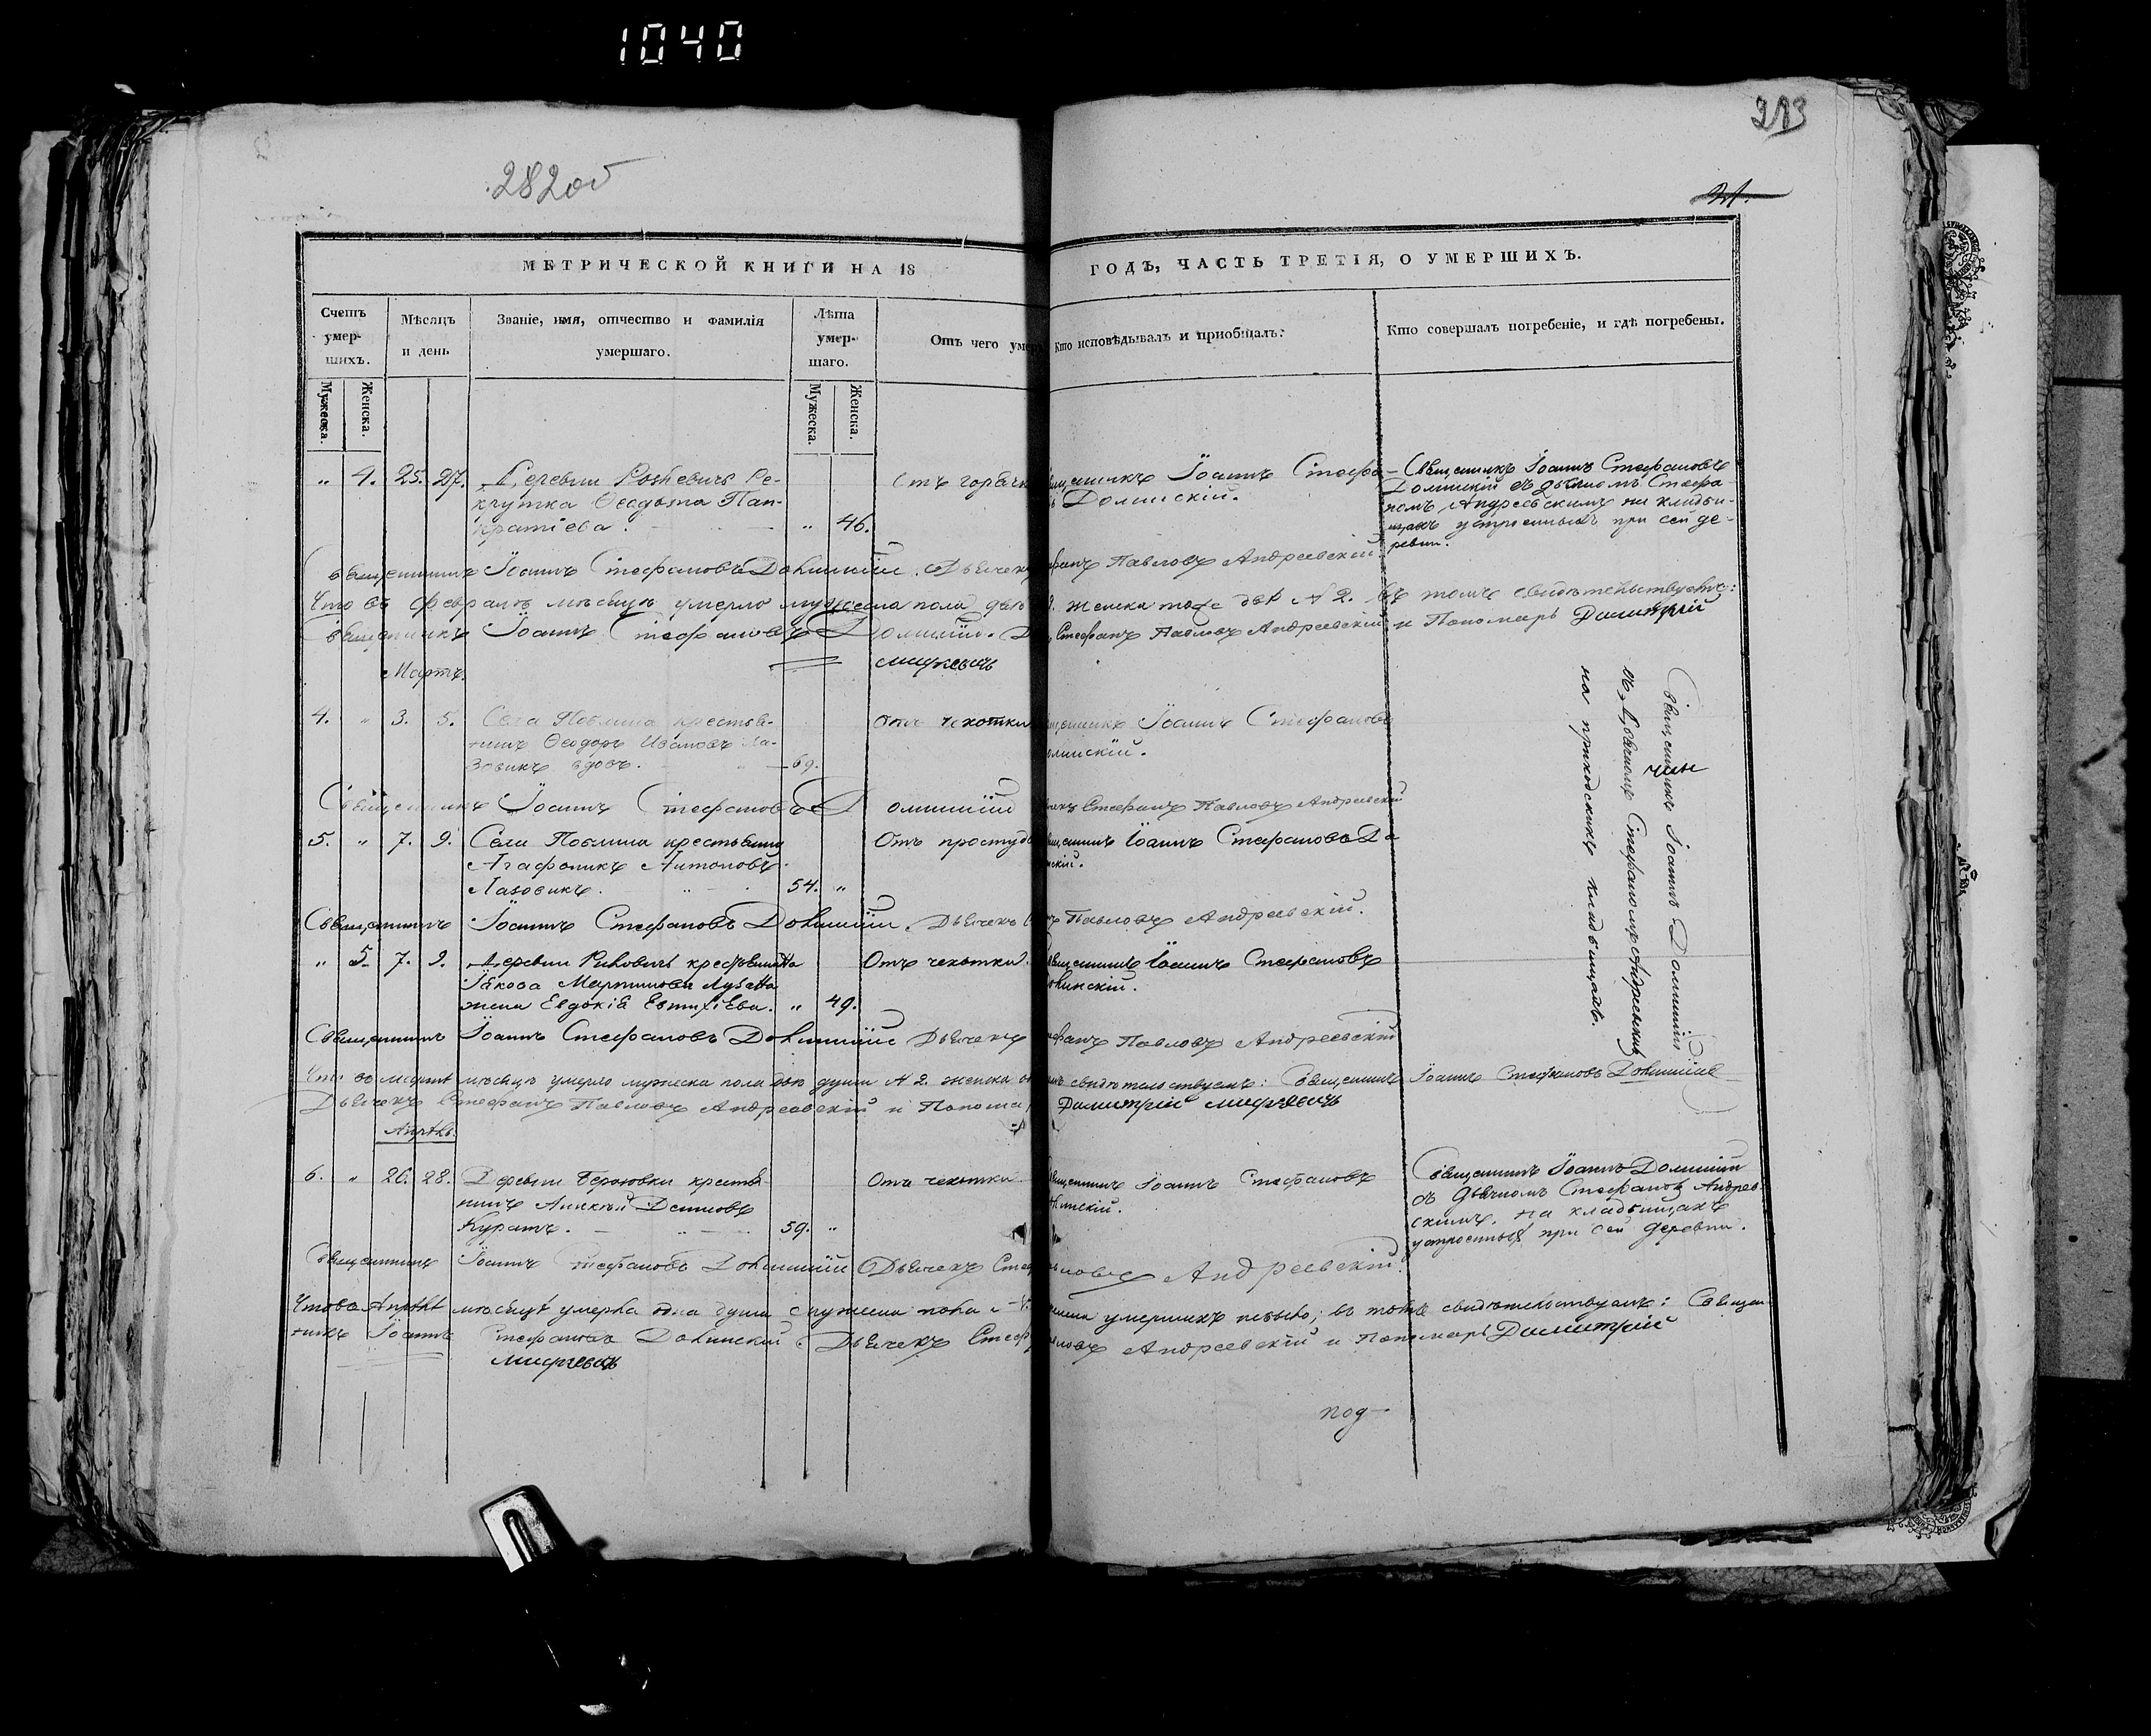 1040
213
282об
21.
МЕТРИЧЕСКОЙ КНИГИ НА 18
ГОДЪ, ЧАСТЬ ТРЕТІЯ, О УМЕРШИХЪ.
Счетъ умер-шихъ.
Мѣсяцъ и день
Званіе, имя, отчество и фамилія умершаго.
Лѣта умер-шаго.
Отъ чего умер
Кто исповѣдывалъ и пріобщалъ:
Кто совершалъ погребеніе, и гдѣ погребены.
Мужеска.
Женска.
Мужеска.
Женска.
" 4. 25. 27. Деревни Ре-
крутка Ѳеодота Пан-
кратіева. " 46.
Отъ горячк
щенникъ Іоаннъ Стефа
Долинскій.
Священникъ Іоаннъ Стефановъ
Долинскій съ дьячкомъ Стефа-
номъ Андреевскимъ на кладби-
щахъ устроенныхъ при сей де-
ревни.
Священникъ Іоаннъ Стефановъ Долинскій. Дьячекъ фанъ Павловъ Андреевскій
Что въ февралѣ мѣсяцѣ умерло мужеска пола двѣ женска тоже двѣ № 2. въ томъ свидѣтельствуемъ:
Священникъ Іоаннъ Стефановъ Долинскій. Стефанъ Павловъ Андреевскій и Пономарь Димитрій
Мартъ.
4. " 3. 5. Села крестья-
нинъ Ѳеодоръ Ивановъ Ла-
зовикъ вдовъ. 69.
Отъ чехотки
щенникъ Іоаннъ Стефановъ
олинскій.
Священникъ Іоаннъ Долинскій
съ Дьячкомъ Стефаномъ Андреевскимъ
на приходскихъ кладбищахъ.
Священникъ Іоаннъ Стефановъ Долинскій Стефанъ Павловъ Андреевскій
5. " 7. 9. Села крестьянинъ
Агафоникъ Антоновъ
Лазовикъ. 54. "
Отъ простуд
щенникъ Іоаннъ Стефановъ До
нскій.
Священникъ Іоаннъ Стефановъ Долинскій. Дьячекъ Павловъ Андреевскій.
" 5. 7. 9. Деревни крестьянина
Іакова Мартинова
жена Евдокія Евтихіева. " 49.
Отъ чехотки.
щенникъ Іоаннъ Стефановъ
олинскій.
Священникъ Іоаннъ Стефановъ Долинскій Дьячекъ фанъ Павловъ Андреевскій
Что во мартѣ мѣсяцѣ умерло мужеска пола двѣ души № 2. женска свидѣтельствуемъ: Священникъ Іоаннъ Стефановъ Долинскій
Дьячекъ Стефанъ Павловъ Андреевскій и Понома Димитрій
Апрѣль.
6. " 26. 28. Деревни крестья
нинъ Алексѣй Денисовъ
Куратъ. 59. "
Отъ чехотки
щенникъ Іоаннъ Стефановъ
линскій.
Священникъ Іоаннъ Долинскій
съ Дьячкомъ Стефаномъ Андреев-
скимъ, на кладбищахъ
устроенныхъ при сей деревни.
Священникъ Іоаннъ Стефановъ Долинскій Дьячекъ Стеф вловъ Андреевскій.
Что во Апрѣлѣ мѣсяцѣ умерла одна душа мужеска пола умершихъ небыло; въ томъ свидѣтельствуемъ: Священ-
никъ Іоаннъ Стефановъ Долинскій Дьячекъ Стеф вловъ Андреевскій и Пономарь Димитрій
под-